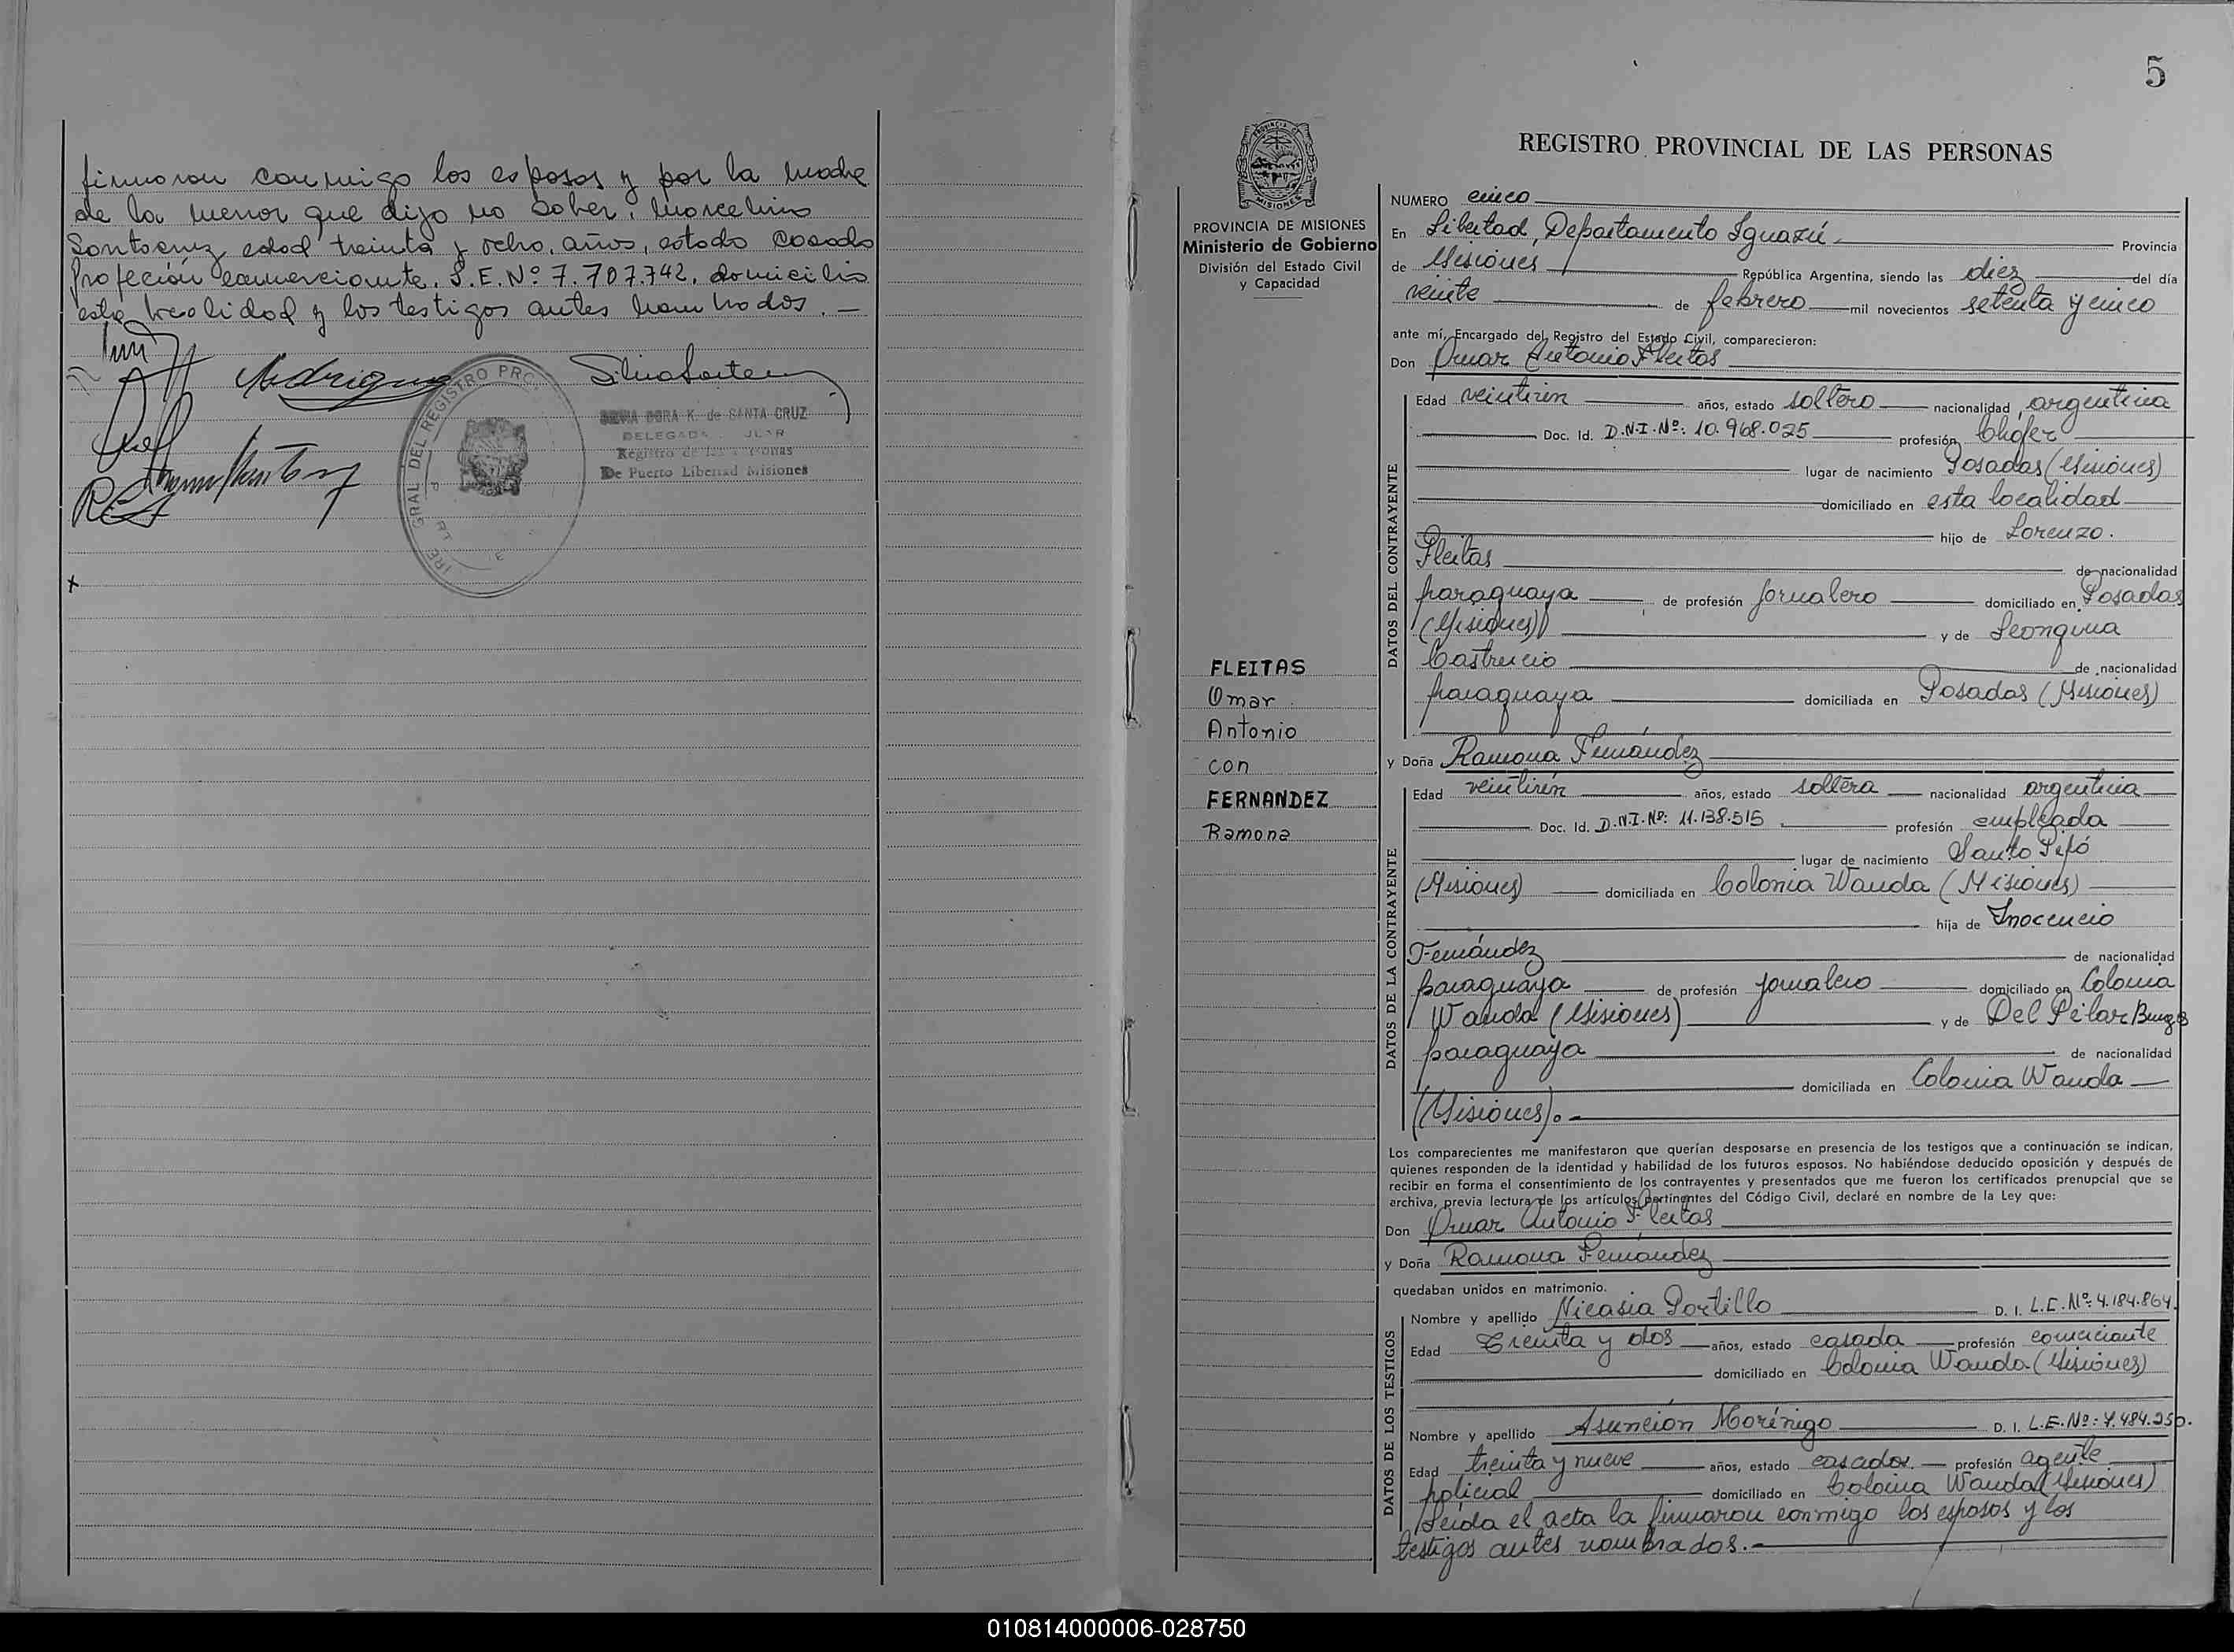 firmaron conmigo los esposos y por la madre
de la menor que dijo no saber, Marcelino
Santacruz, edad treinta y ocho, años, estado casado
Profeción comerciante. L.E. Nº 7.707.742. domicilio
esta localidad y los testigos antes nombrados. —
DORA K. de SANTA CRUZ
Registro de las
De Puerto Libertad Misiones
5
PROVINCIA DE MISIONES
Ministerio de Gobierno
División del Estado Civil
y Capacidad
FLEITAS
Omar
Antonio
con
FERNANDEZ
Ramona
REGISTRO PROVINCIAL DE LAS PERSONAS
NUMERO cinco
En Libertad, Departamento Iguazú Provincia
de Misiones República Argentina, siendo las diez del día
veinte de febrero mil novecientos setenta y cinco
ante mí, Encargado del Registro del Estado Civil, comparecieron:
Don Omar Antonio Fleitas
DATOS DEL CONTRAYENTE
Edad veintiún años, estado soltero nacionalidad argentina
Doc. Id. D.N.I. Nº: 10.968.025 profesión Chofer
lugar de nacimiento Posadas (Misiones)
domiciliado en esta localidad
hijo de Lorenzo.
Fleitas de nacionalidad
paraguaya de profesión jornalero domiciliado en Posadas
(Misiones) y de Leongina
Castrucio de nacionalidad
paraguaya domiciliada en Posadas (Misiones)
y Doña Ramona Fernández
DATOS DE LA CONTRAYENTE
Edad veintiún años, estado soltera nacionalidad argentina
Doc. Id. D.N.I. Nº: 11.138.515 profesión empleada
lugar de nacimiento Santo Pipó
(Misiones) domiciliada en Colonia Wanda (Misiones)
hija de Inocencio
Fernández de nacionalidad
paraguaya de profesión jornalero domiciliado en Colonia
Wanda (Misiones) y de Del Pilar Burgos
paraguaya de nacionalidad
domiciliada en Colonia Wanda
(Misiones). -
Los comparecientes me manifestaron que querían desposarse en presencia de los testigos que a continuación se indican,
quienes responden de la identidad y habilidad de los futuros esposos. No habiéndose deducido oposición y después de
recibir en forma el consentimiento de los contrayentes y presentados que me fueron los certificados prenupcial que se
archiva, previa lectura de los artículos pertinentes del Código Civil, declaré en nombre de la Ley que:
Don Omar Antonio Fleitas
y Doña Ramona Fernández
quedaban unidos en matrimonio.
DATOS DE LOS TESTIGOS
Nombre y apellido Nicasia Portillo D. I. L.E. Nº: 4.184.864.
Edad Treinta y dos años, estado casada profesión comerciante
domiciliado en Colonia Wanda (Misiones)
Nombre y apellido Asunción Morínigo D. I. L.E. Nº: 7.484.250.
Edad treinta y nueve años, estado casado. profesión agente
policial domiciliado en Colonia Wanda (Misiones)
Leída el acta la firmaron conmigo los esposos y los
testigos antes nombrados. -
010814000006-028750